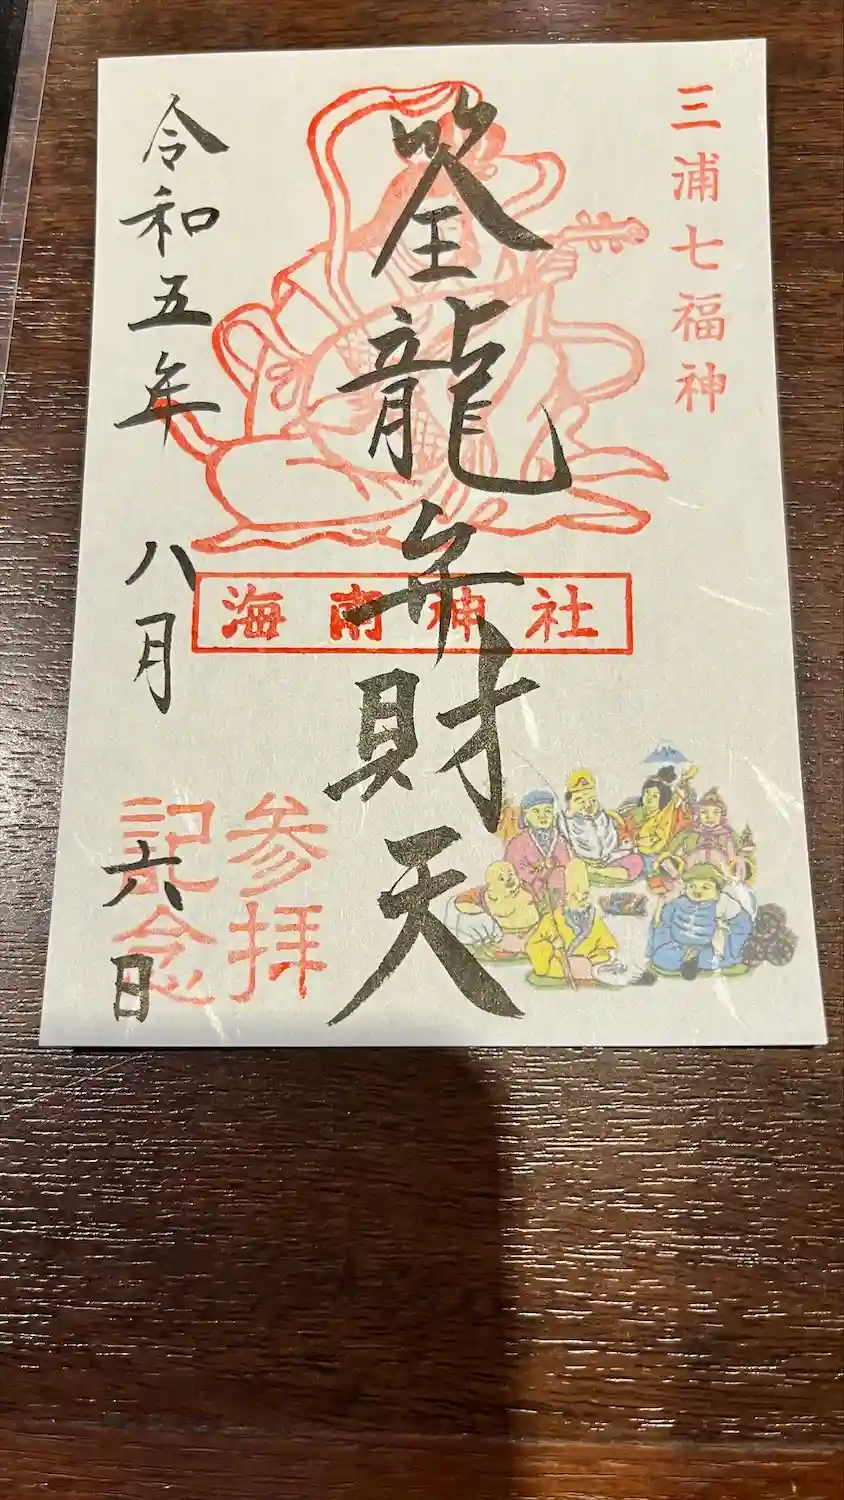 三浦七福神
筌龍弁財天
海南神社
参拝
記念
令和五年 八月 六日